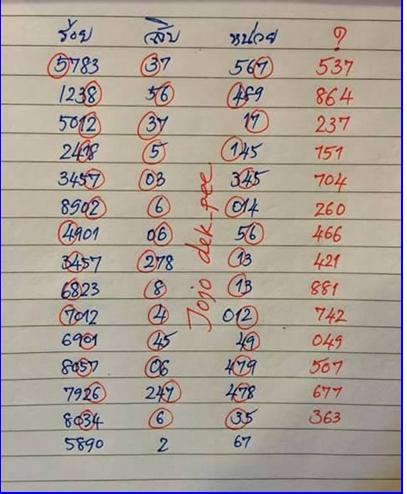 ร้อย สิบ หน่วย ?
5783 37 567 537
1238 56 489 864
5012 37 17 237
2418 5 145 151
3457 03 345 704
8902 6 014 260
4901 06 56 466
3457 278 13 421
6823 8 13 881
7012 4 012 742
6901 45 49 049
8057 06 479 507
7926 247 478 677
8034 6 35 363
5890 2 67
Jojo dek-pee